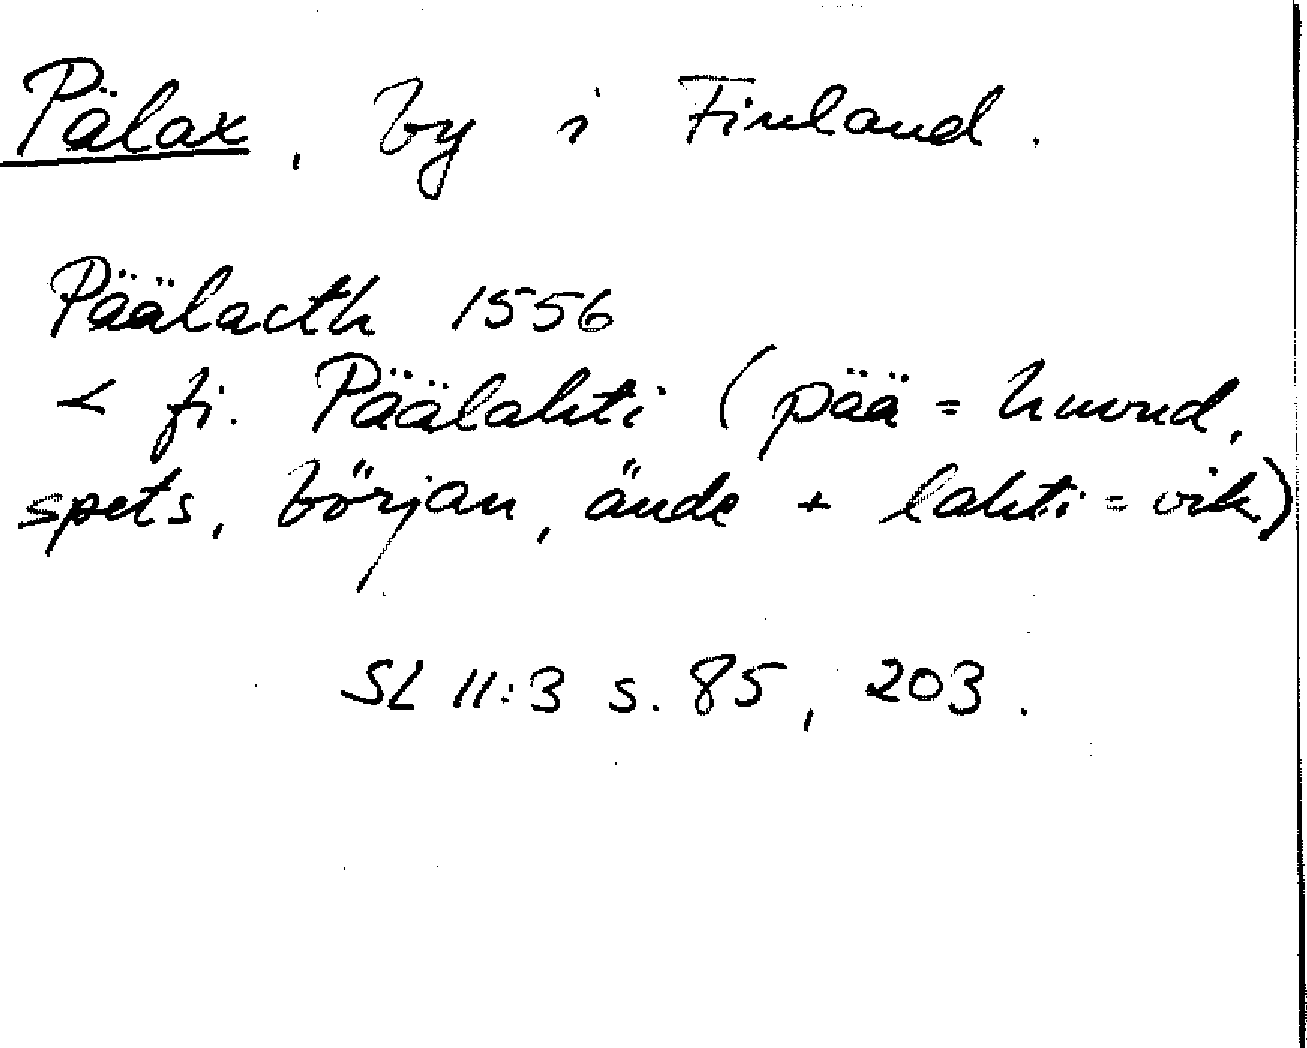 Pälax, by i Finland.
Päälacth 1556
< fi. Päälahti (pää = huvud,
spets, början, ände + lahti = vik)
SL 11:3 s. 85, 203.